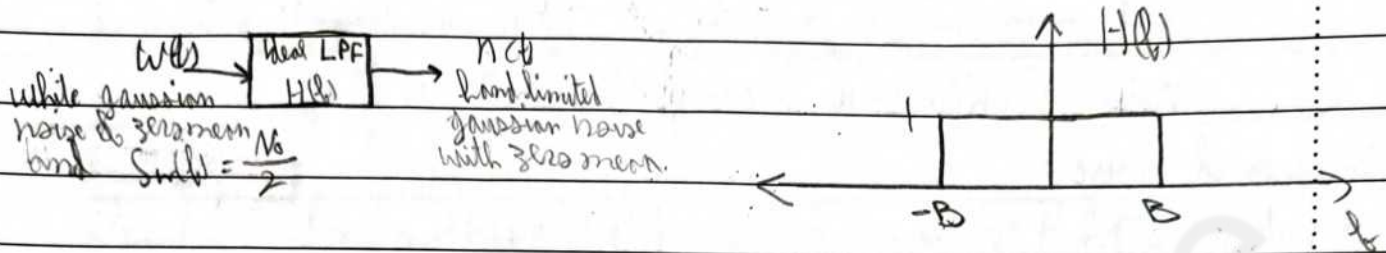 w(t)
Ideal LPF
H(f)
n(t)
white gaussian
noise of zero mean
and Sw(f) = N₀/2
band limited
gaussian noise
with zero mean.
H(f)
1
-B
B
f